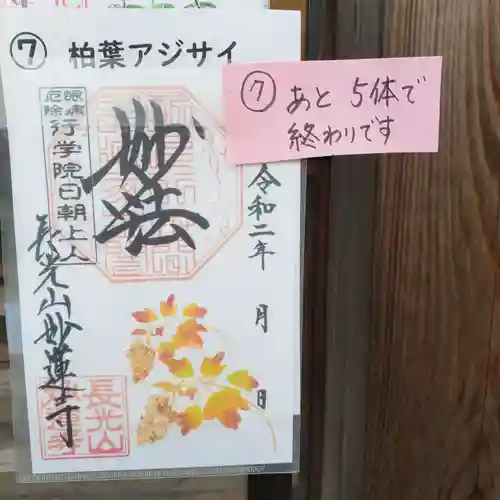 ⑦ 柏葉アジサイ
⑦ あと 5体で
終わりです
令和二年 月 日
妙法
眼病
厄除
行学院日朝上人
長光山妙蓮寺
長光山
妙蓮寺